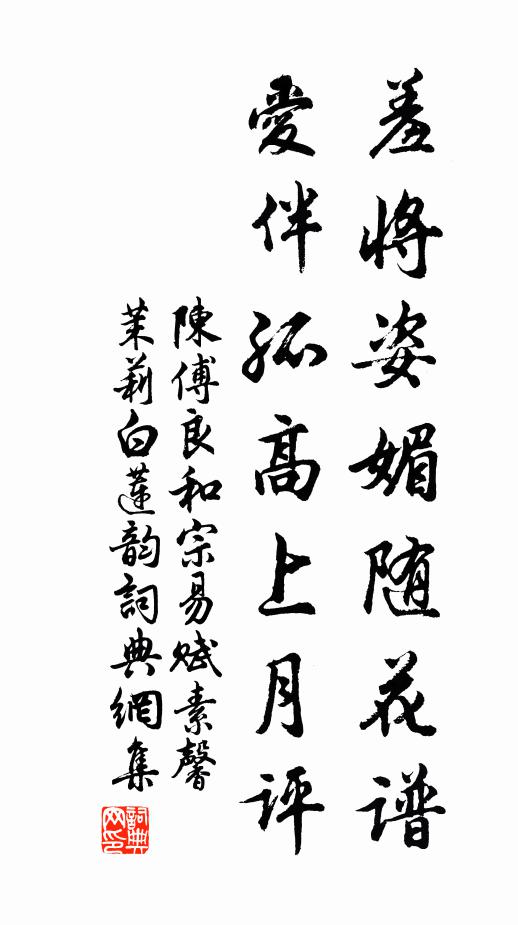 羞將姿媚随花谱
愛伴孤高上月评
陳傅良和宗易赋素馨
茉莉白蓮韵詞典網集
詞典网印